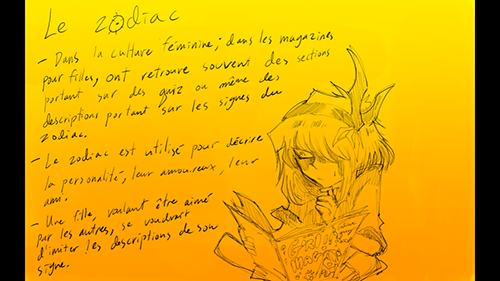 Le zodiac
- Dans la culture féminine; dans les magazines
pour filles, ont retrouve souvent des sections
portant sur des quiz ou même des
descriptions portant sur les signes du
zodiac.
- Le zodiac est utilisé pour décrire
la personalité, leur amoureux, leur
ami.
- Une fille, voulant être aimé
par les autres, se voudrait
d'imiter les descriptions de son
signe.
Girl
Mag